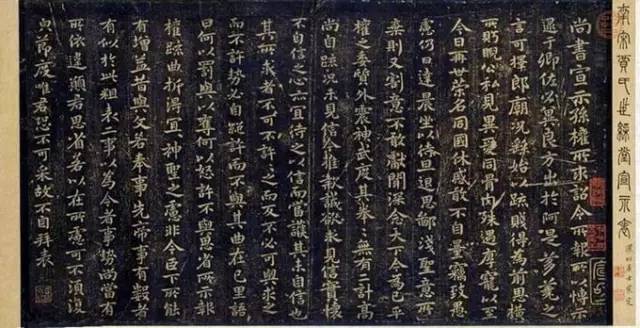 南宋賈氏世綵堂宣示表
尚書宣示孫權所求詔令所報所以博示
逮于卿佐必冀良方出於阿是芻蕘之
言可擇郎廟況繇始以疏賤得為前恩橫
所盱睨公私見異愛同骨肉殊遇厚寵以至
今日再世榮名同國休慼敢不自量竊致愚
慮仍日達晨坐以待旦退思鄙淺聖意所
棄則又割意不敢獻聞深念天下今為已平
權之委質外震神武度其拳拳無有二計高
尚自疏況未見信今推款誠欲求見信實懷
不自信之心亦宜待之以信而當護其未自信也
其所求者不可不許許之而反不必可與求之
而不許勢必自絕許而不與其曲在己里語
曰何以罰與以奪何以怒許不與思省所示報
權疏曲折得宜神聖之慮非今臣下所能
有增益昔與文若奉事先帝事有數者
有似於此粗表二事以為今者事勢尚當有
所依違願君思省若以在所慮可不須復
貌節度唯君恐不可采故不自拜表